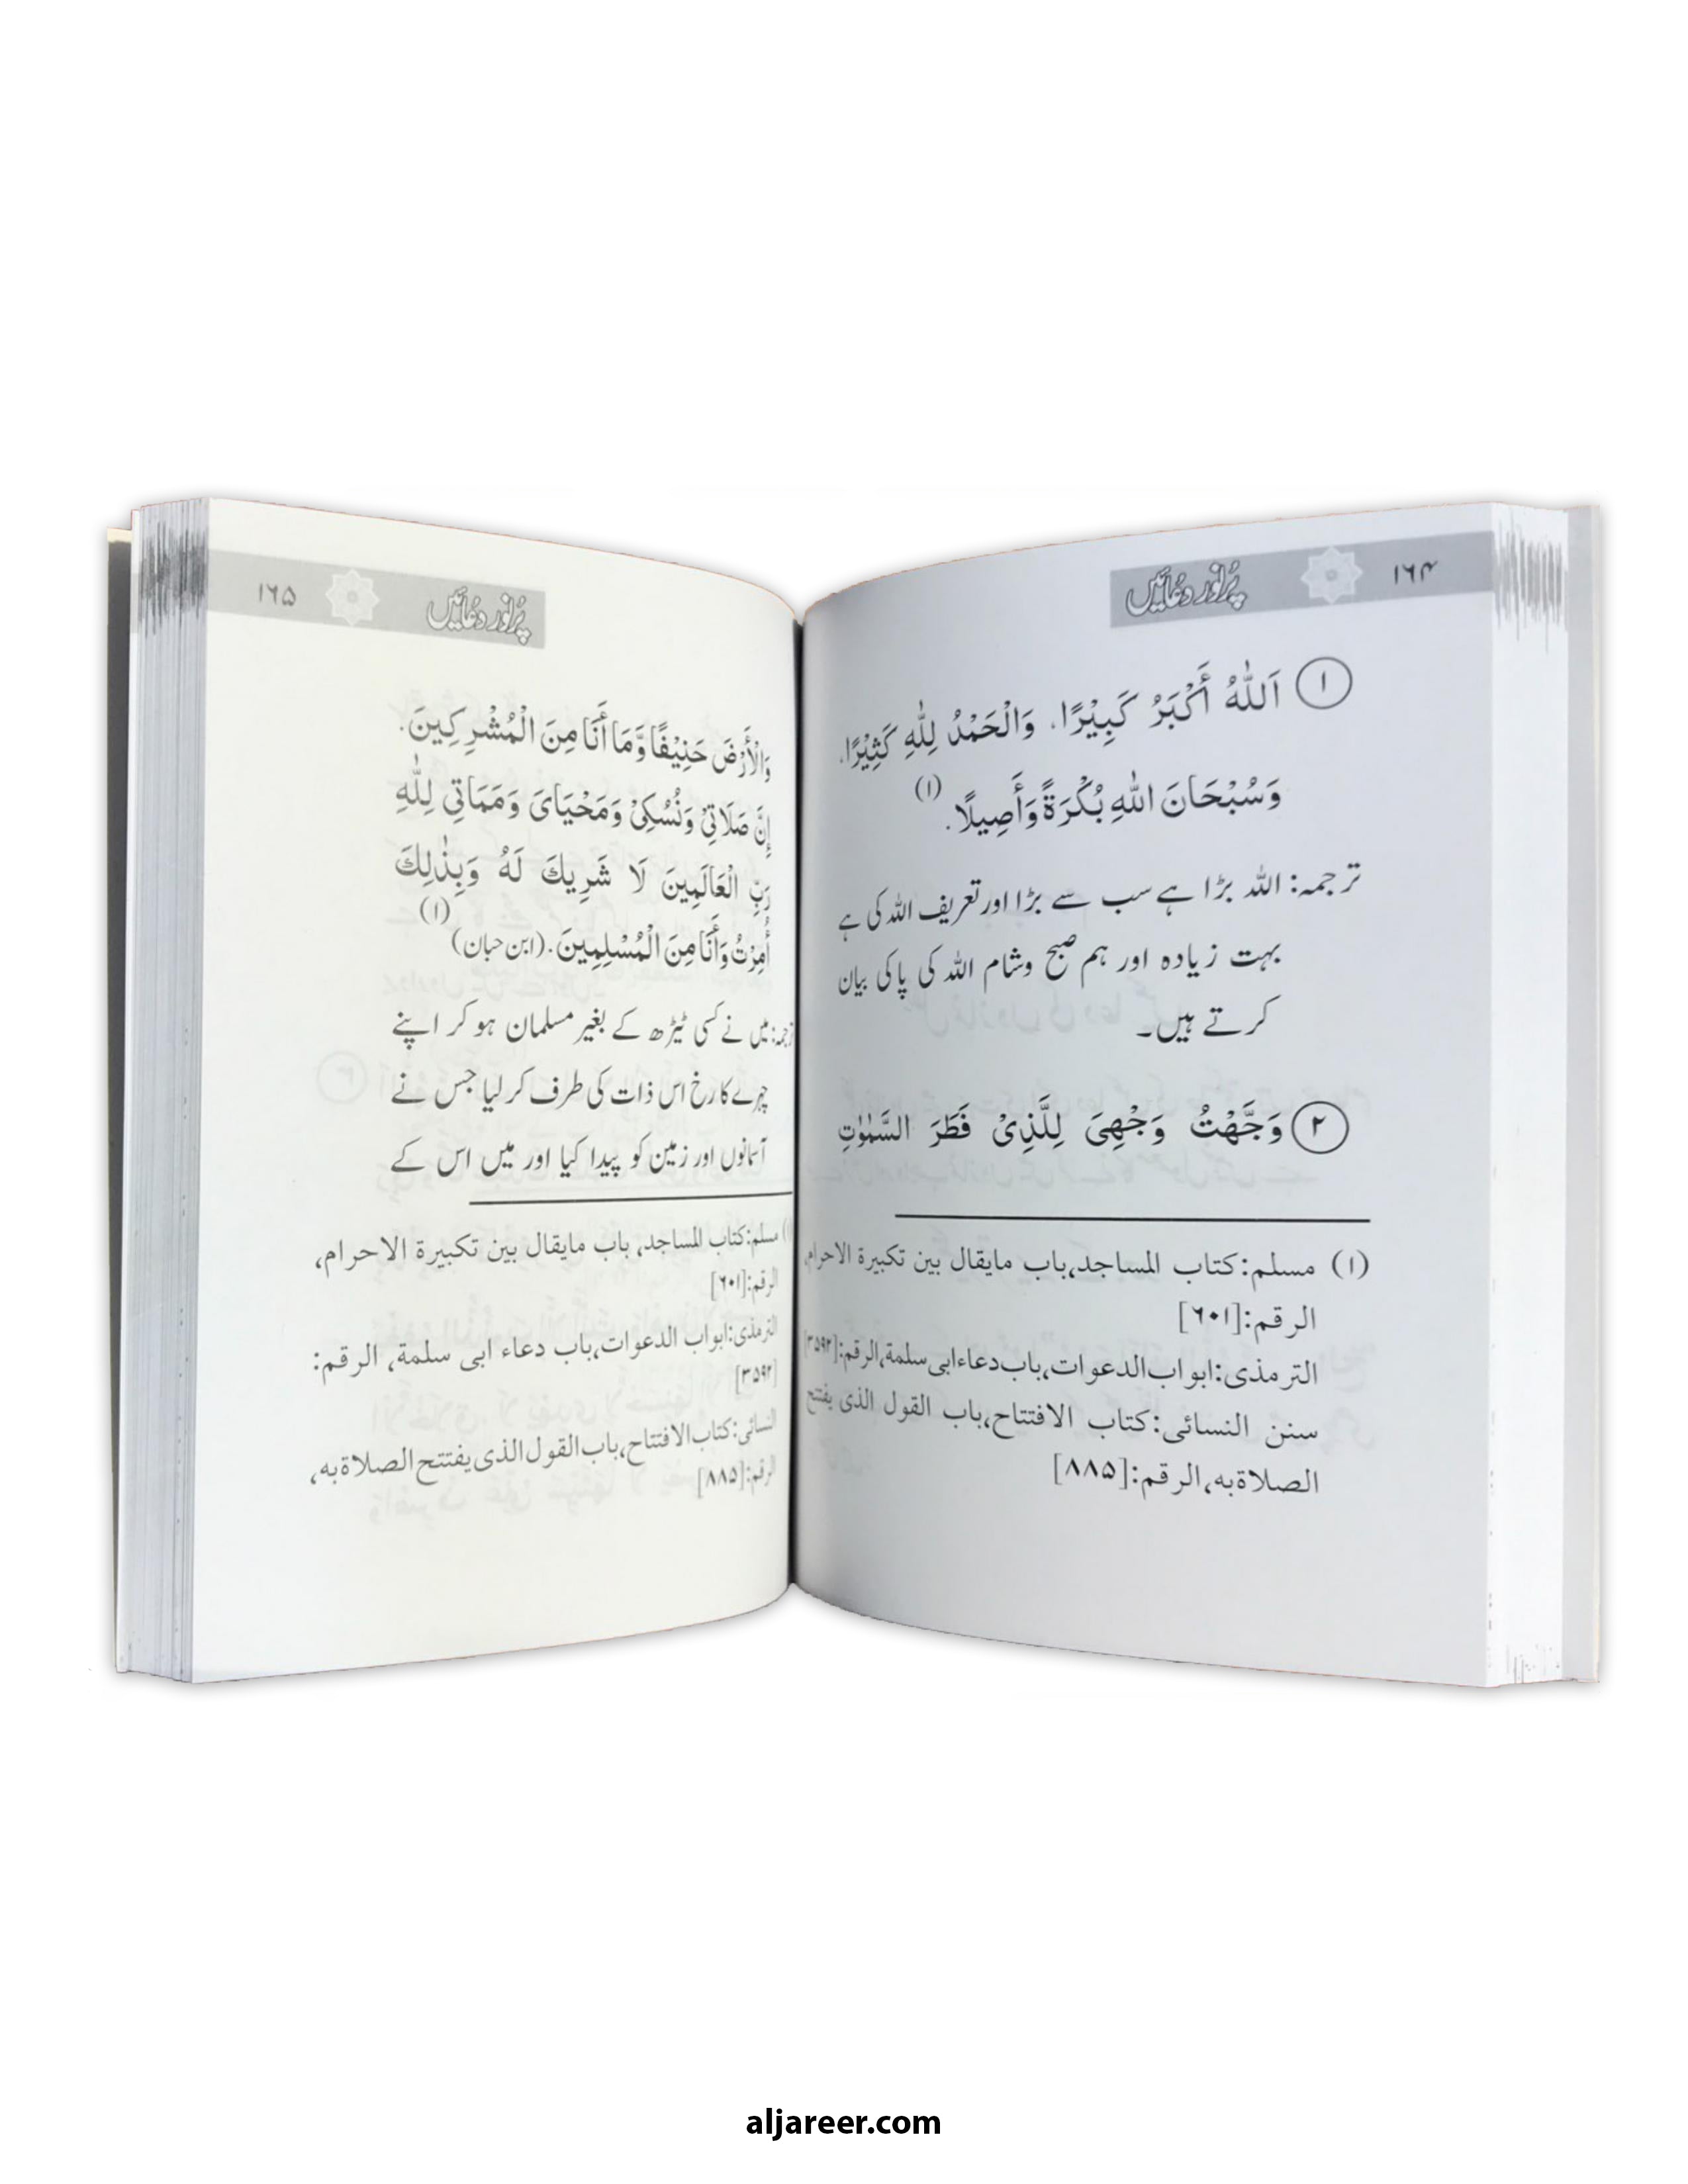 ۱۶۴ پُرنور دعائیں
۱ اَللّٰهُ أَكْبَرُ كَبِيْرًا، وَالْحَمْدُ لِلّٰهِ كَثِيْرًا،
وَسُبْحَانَ اللّٰهِ بُكْرَةً وَأَصِيلًا. (۱)
ترجمہ: اللہ بڑا ہے سب سے بڑا اور تعریف اللہ کی ہے
بہت زیادہ اور ہم صبح وشام اللہ کی پاکی بیان
کرتے ہیں۔
۲ وَجَّهْتُ وَجْهِيَ لِلَّذِيْ فَطَرَ السَّمٰوٰتِ
(۱) مسلم:كتاب المساجد،باب مايقال بين تكبيرة الاحرام،
الرقم:[۶۰۱]
الترمذى:ابواب الدعوات،باب دعاء ابى سلمة،الرقم:[۳۵۹۲]
سنن النسائى:كتاب الافتتاح،باب القول الذى يفتتح
الصلاة به،الرقم:[۸۸۵]
پُرنور دعائیں ۱۶۵
وَالْأَرْضَ حَنِيْفًا وَّمَا أَنَا مِنَ الْمُشْرِكِينَ.
إِنَّ صَلَاتِيْ وَنُسُكِيْ وَمَحْيَايَ وَمَمَاتِي لِلّٰهِ
رَبِّ الْعَالَمِينَ لَا شَرِيكَ لَهُ وَبِذٰلِكَ
أُمِرْتُ وَأَنَا مِنَ الْمُسْلِمِينَ.(ابن حبان) (۱)
ترجمہ: میں نے کسی ٹیڑھ کے بغیر مسلمان ہو کر اپنے
چہرے کا رخ اس ذات کی طرف کر لیا جس نے
آسمانوں اور زمین کو پیدا کیا اور میں اس کے
(۱) مسلم:كتاب المساجد، باب مايقال بين تكبيرة الاحرام،
الرقم:[۶۰۱]
الترمذى:ابواب الدعوات،باب دعاء ابى سلمة، الرقم:
[۳۵۹۲]
النسائى:كتاب الافتتاح،باب القول الذى يفتتح الصلاة به،
الرقم:[۸۸۵]
aljareer.com